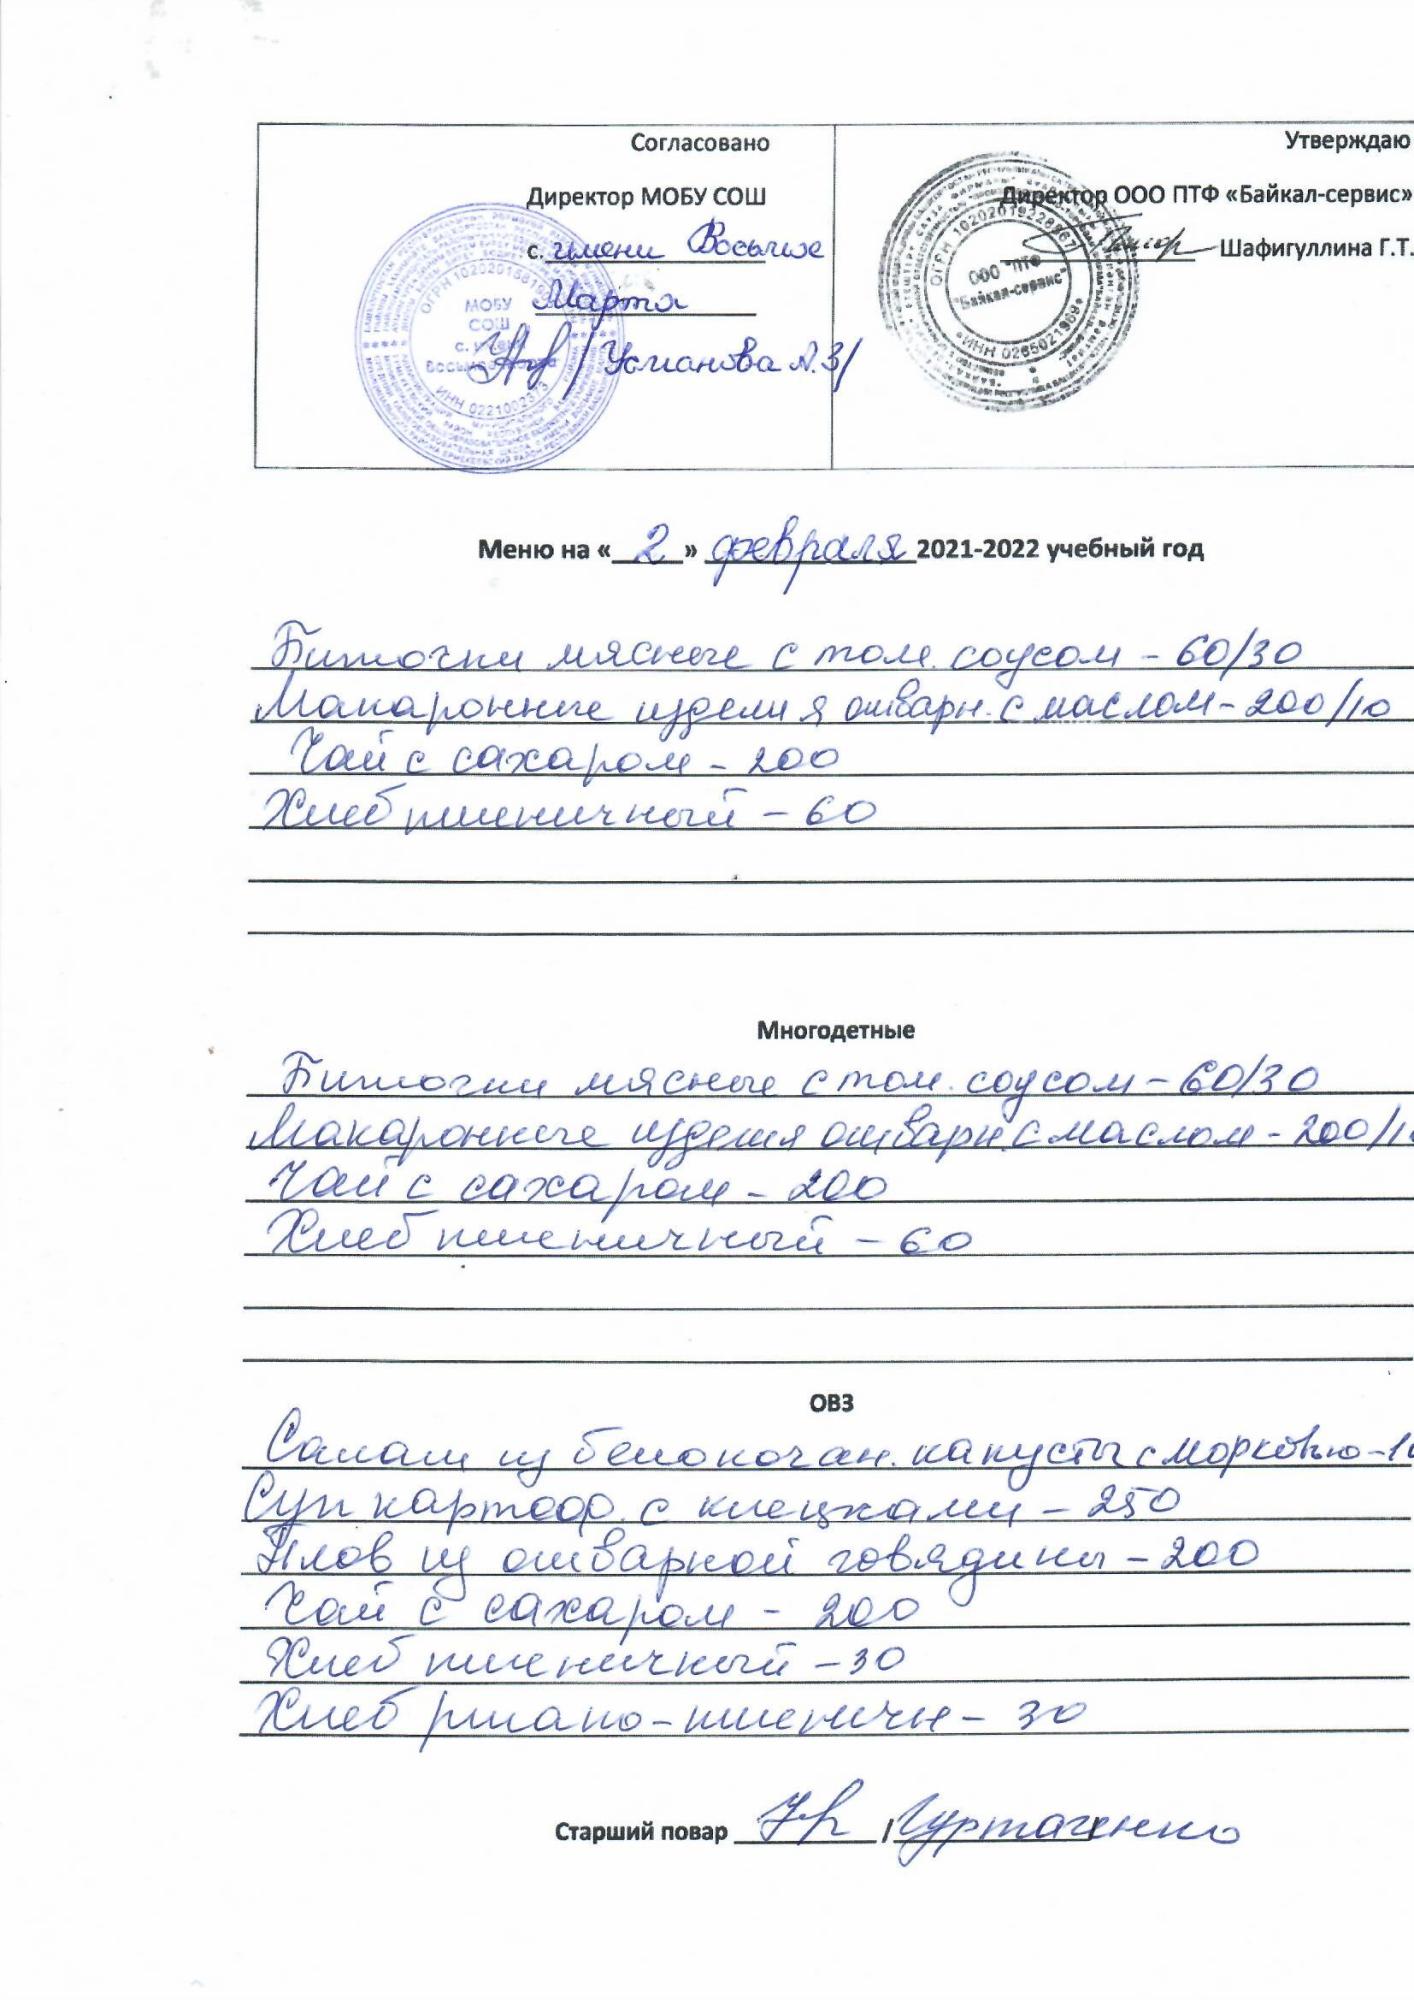 Согласовано
Директор МОБУ СОШ
с. имени Восьмое
Марта
/Усманова Л.З/
МОБУ
СОШ
с. имени
Восьмое Марта
ИНН 0221002373
Утверждаю
Директор ООО ПТФ «Байкал-сервис»
Шафигуллина Г.Т.
ООО "ПТФ
"Байкал-сервис"
Меню на « 2 » февраля 2021-2022 учебный год
Биточки мясные с том. соусом - 60/30
Макаронные изделия отварн. с маслом - 200/10
Чай с сахаром - 200
Хлеб пшеничный - 60
Многодетные
Биточки мясные с том. соусом - 60/30
Макаронные изделия отварн. с маслом - 200/1
Чай с сахаром - 200
Хлеб пшеничный - 60
ОВЗ
Салат из белокочан. капусты с морковью - 1
Суп картоф. с клецками - 250
Плов из отварной говядины - 200
Чай с сахаром - 200
Хлеб пшеничный - 30
Хлеб ржано-пшеничн - 30
Старший повар /